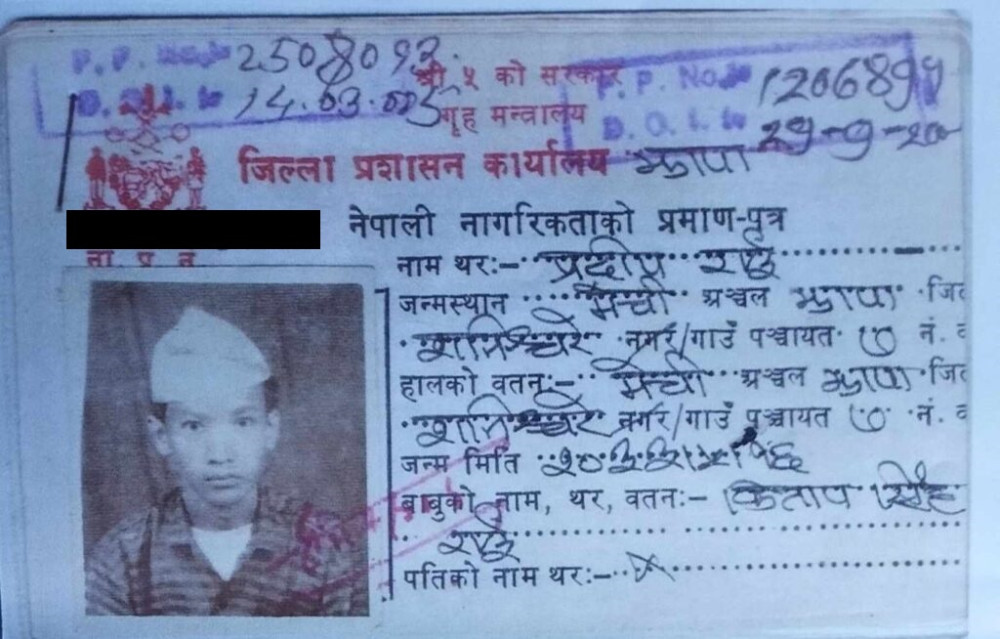 P.P. No. 2508093.
श्री ५ को सरकार
P. No. 1206899
D.O.I. 14.03.005
गृह मन्त्रालय
D.O.I. 29-9-20
जिल्ला प्रशासन कार्यालय झापा
नेपाली नागरिकताको प्रमाण-पत्र
ना प्र न
नाम थरः- प्रदीप राई
जन्मस्थान मेची अञ्चल झापा जि
शनिश्चरे नगर/गाउँ पञ्चायत ७ नं.
हालको वतनः- मेची अञ्चल झापा जि
शनिश्चरे नगर/गाउँ पञ्चायत ७ नं.
जन्म मिति
बाबुको नाम, थर, वतनः- किताप सिंह
राई
पतिको नाम थरः- X